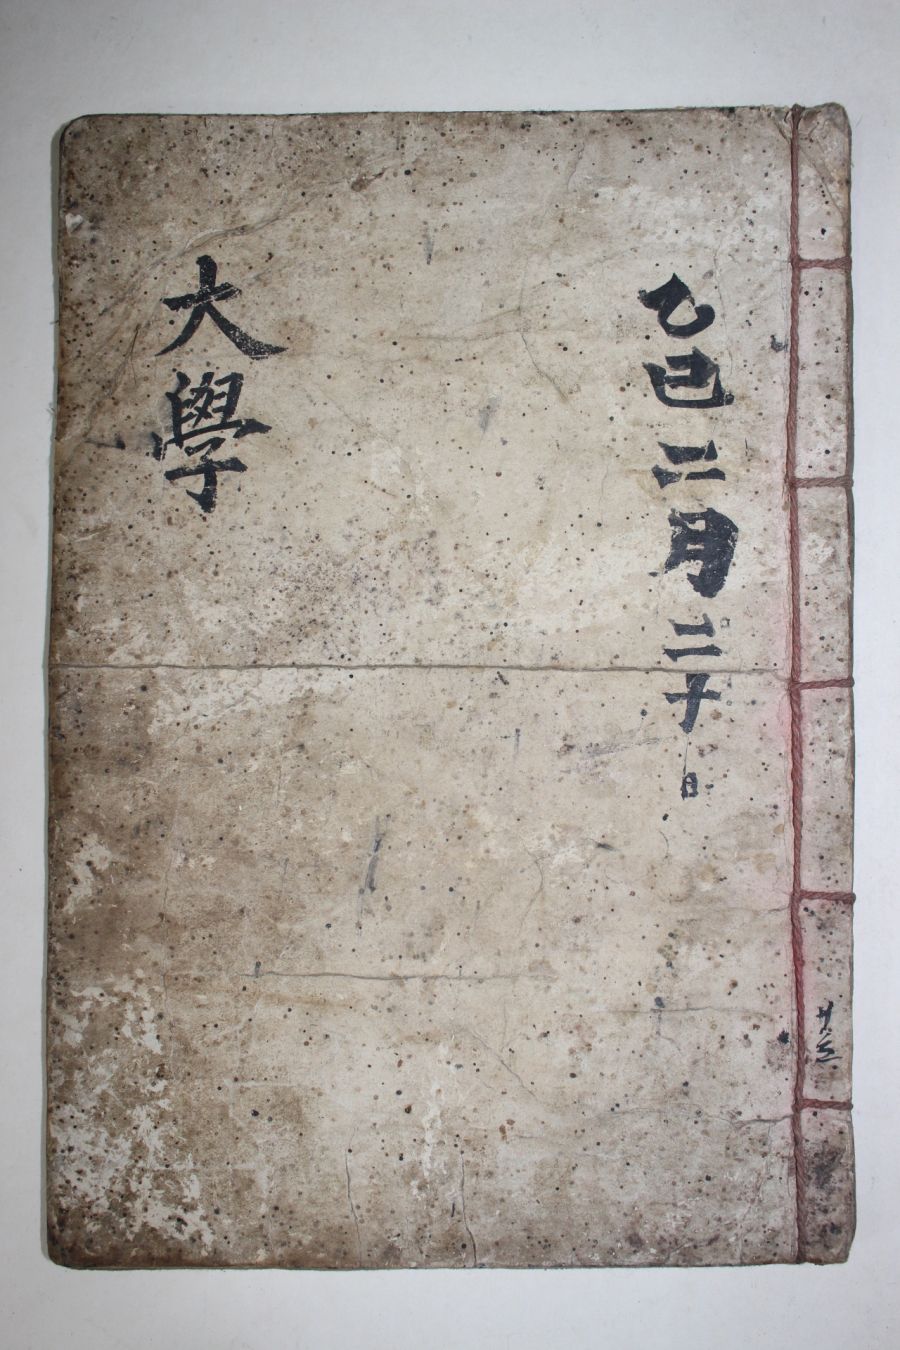 乙巳二月二十日
大學